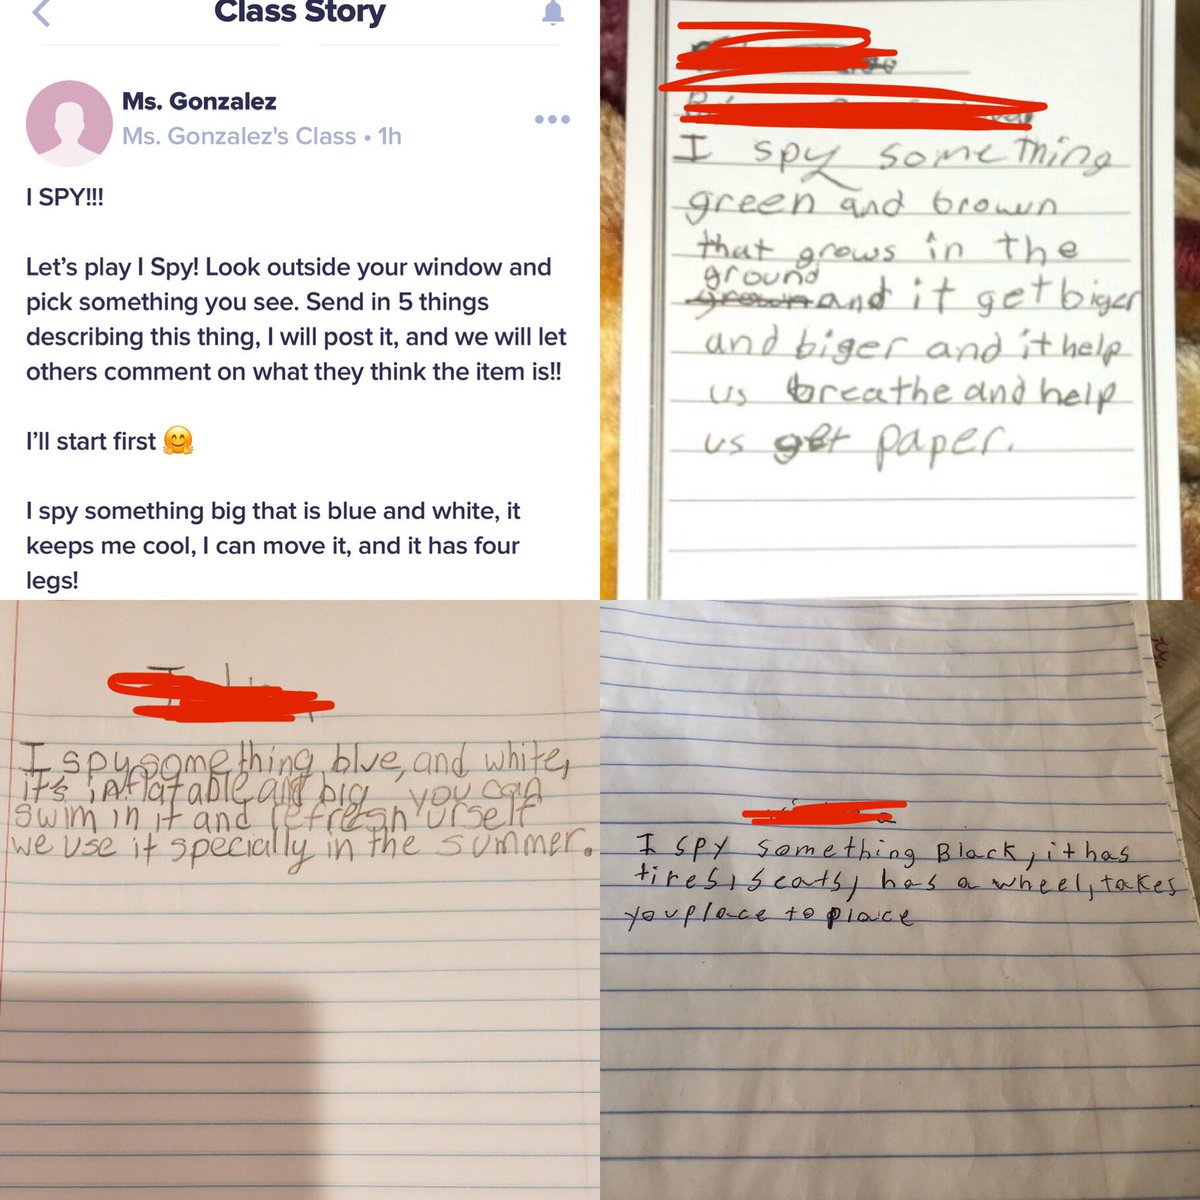 Class Story
Ms. Gonzalez
Ms. Gonzalez's Class • 1h
I SPY!!!
Let's play I Spy! Look outside your window and
pick something you see. Send in 5 things
describing this thing, I will post it, and we will let
others comment on what they think the item is!!
I'll start first 🤗
I spy something big that is blue and white, it
keeps me cool, I can move it, and it has four
legs!
I spy something
green and brown
that grows in the
ground
grown and it get biger
and biger and it help
us breathe and help
us get paper.
I spy something blue, and white,
it's inflatable and big you can
swim in it and refresh urself
we use it specially in the summer.
I spy something Black, it has
tires, seats, has a wheel, takes
you place to place